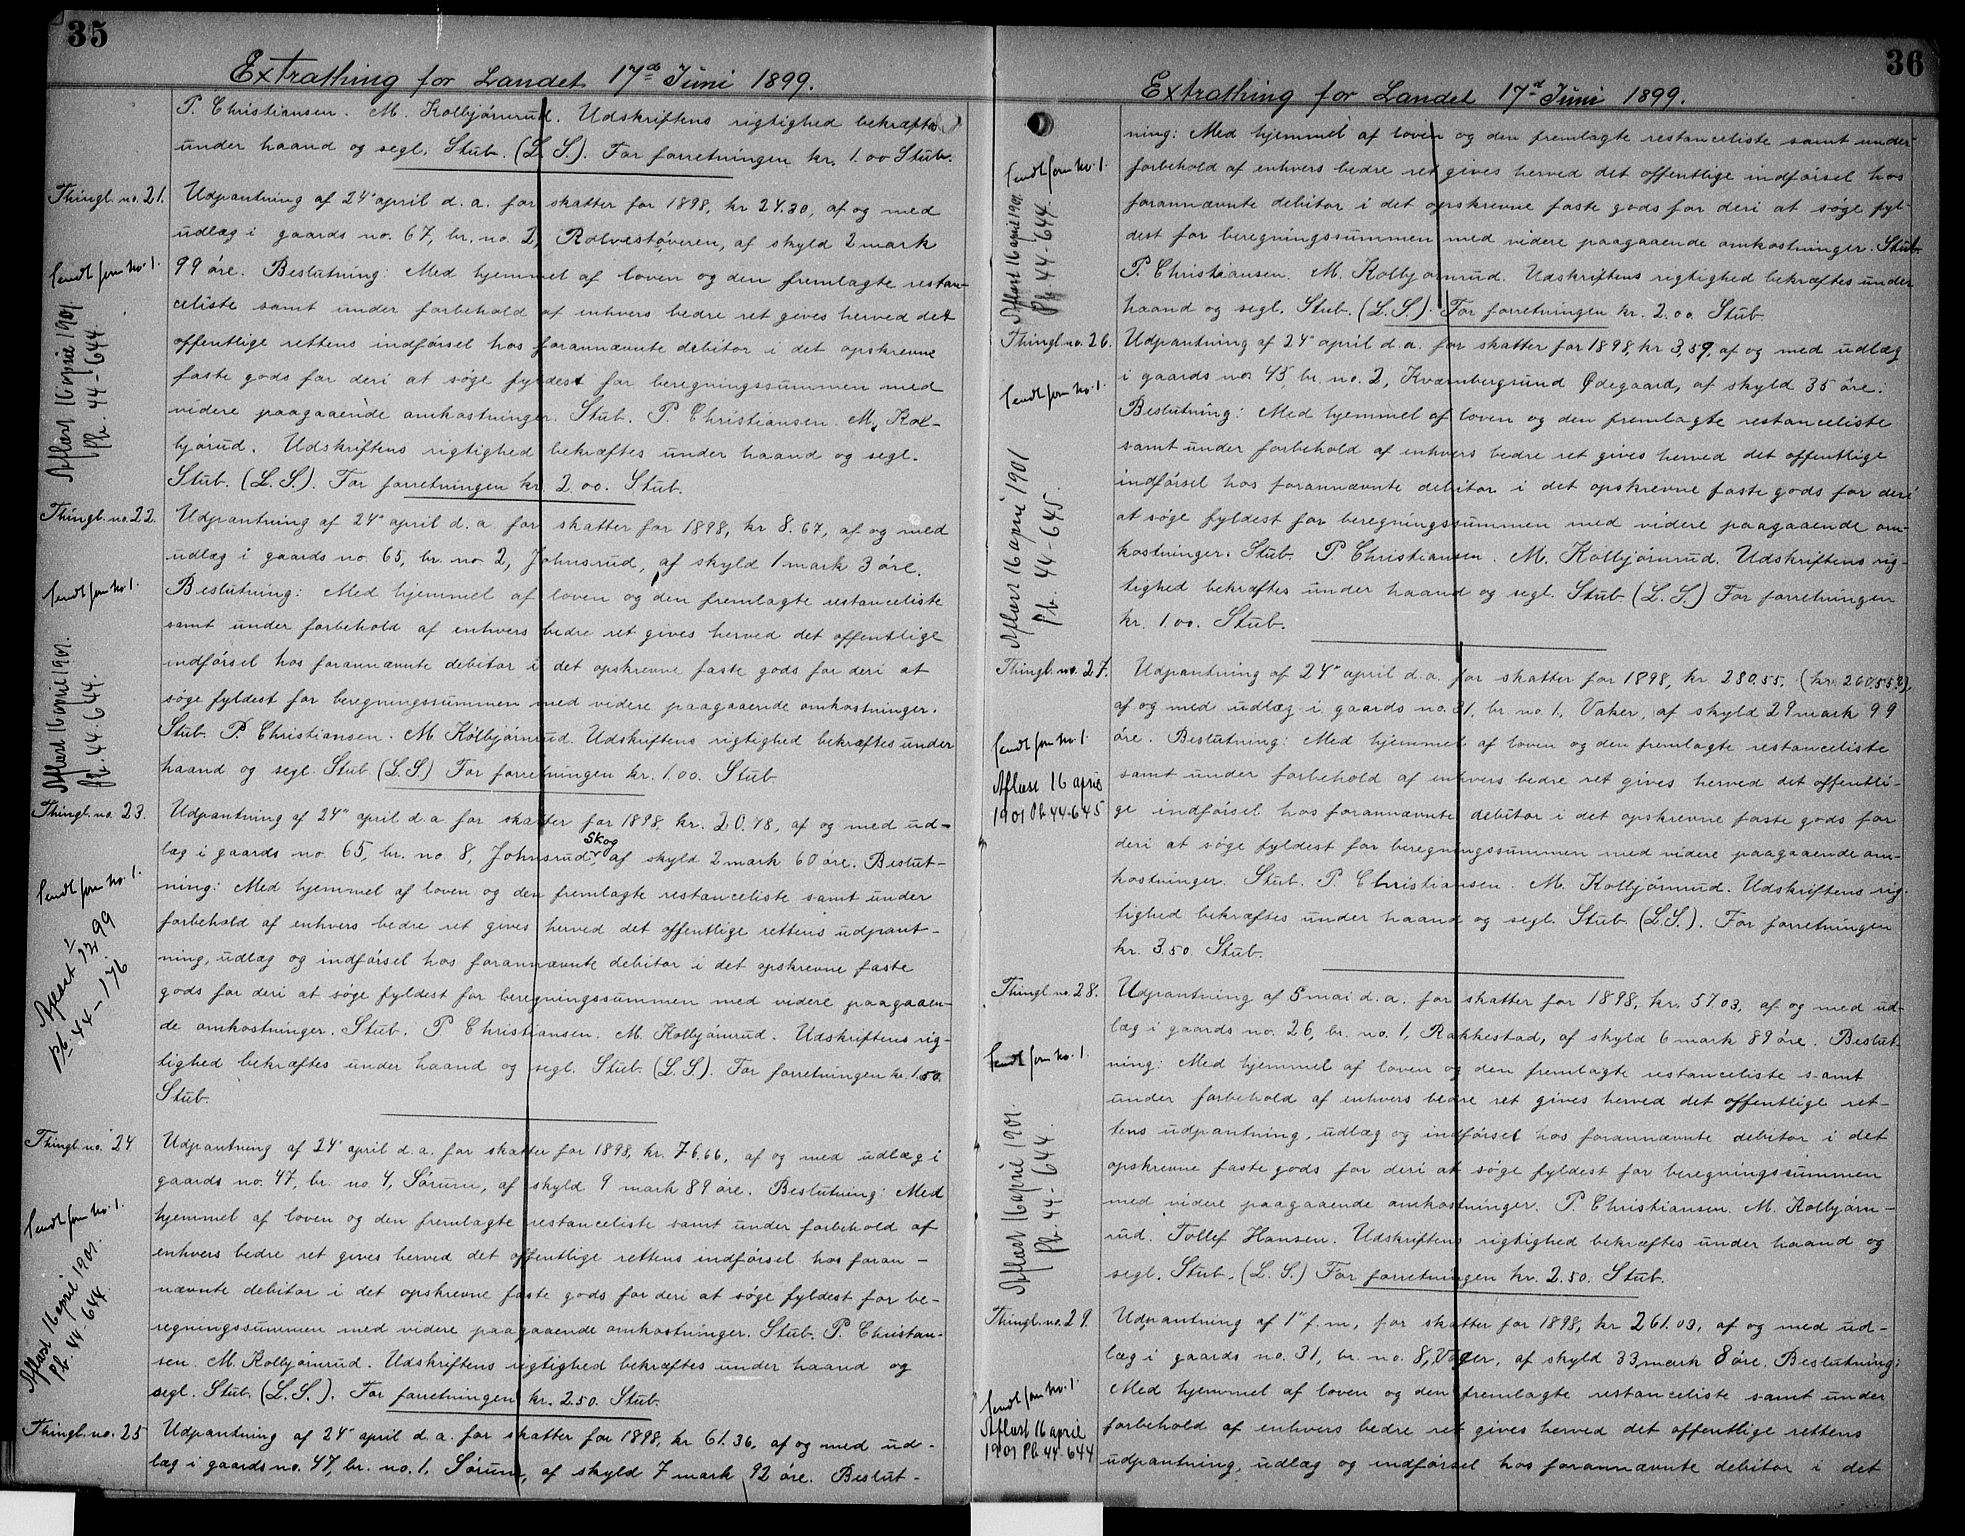 35
Extrathing for Landet 17de Juni 1899.
P. Christiansen. M. Kolbjørnrud. Udskriftens rigtighed bekræftes
under haand og segl. Stub. (L. S.). For forretningen kr. 1.00 Stub.
Thingl. no. 21.
Udpantning af 24' april d. a. for skatter for 1898, kr 24.30, af og med
udlæg i gaards no. 67, br. no. 2, Rolvestøveren, af skyld 2 mark
Sendt form No. 1.
99 øre. Beslutning: Med hjemmel af loven og den fremlagte restan-
celiste samt under forbehold af enhvers bedre ret gives herved det
offentlige rettens indførsel hos forannævnte debitor i det opskrevne
faste gods for deri at søge fyldest for beregningssummen med
videre paagaaende omkostninger. Stub. P. Christiansen. M. Kol-
bjørud. Udskriftens rigtighed bekræftes under haand og segl.
Stub. (L. S.). For forretningen kr. 2.00. Stub.
Aflæst 16 april 1901
Pb. 44-644
Thingl. no. 22.
Udpantning af 24' april d. a. for skatter for 1898, kr 8.67, af og med
udlæg i gaards no. 65, br. no 2, Johnsrud, af skyld 1 mark 3 øre.
Sendt form No 1.
Beslutning: Med hjemmel af loven og den fremlagte restanceliste
samt under forbehold af enhvers bedre ret gives herved det offentlige
indførsel hos forannævnte debitor i det opskrevne faste gods for deri at
søge fyldest for beregningssummen med videre paagaaende omkostninger.
Stub. P. Christiansen. M. Kolbjørnrud. Udskriftens rigtighed bekræftes under
haand og segl. Stub (L. S.) For forretningen kr. 1.00. Stub.
Aflæst 16 april 1901.
Pb. 44-644.
Thingl. no. 23.
Udpantning af 24' april d. a for skatter for 1898, kr. 20.78, af og med ud-
Skog
læg i gaards no. 65, br. no 8, Johnsrud, af skyld 2 mark 60 øre. Beslut-
Sendt form No. 1.
ning: Med hjemmel af loven og den fremlagte restanceliste samt under
forbehold af enhvers bedre ret gives herved det offentlige rettens udpant-
ning, udlæg og indførsel hos forannævnte debitor i det opskrevne faste
gods for deri at søge fyldest for beregningssummen med videre paagaaen-
de omkostninger. Stub. P. Christiansen. M. Kolbjørnrud. Udskriftens rig-
tighed bekræftes under haand og segl. Stub. (L. S.). For forretningen kr. 1.50.
Stub.
Pb. 44-176
Thingl. no. 24
Udpantning af 24' april d. a. for skatter for 1898, kr. 76.66, af og med udlæg i
gaards no. 47, br. no 4, Sørum, af skyld 9 mark 89 øre. Beslutning: Med
Sendt form No. 1.
hjemmel af loven og den fremlagte restanceliste samt under forbehold af
enhvers bedre ret gives herved det offentlige rettens indførsel hos foran-
nævnte debitor i det opskrevne faste gods for deri at søge fyldest for be-
regningssummen med videre paagaaende omkostninger. Stub. P. Christan-
sen. M. Kolbjørnrud. Udskriftens rigtighed bekræftes under haand og
segl. Stub. (L. S.). For forretningen kr. 2.50. Stub.
Aflæst 16 april 1901.
Pb. 44-644
Thingl. no. 25
Udpantning af 24' april d. a. for skatter for 1898, kr 61.36, af og med ud-
læg i gaards no. 47, br. no. 1, Sørum, af skyld 7 mark 92 øre. Beslut-
36
Extrathing for Landet 17de Juni 1899.
ning: Med hjemmel af loven og den fremlagte restanceliste samt under
Sendt form No. 1.
forbehold af enhvers bedre ret gives herved det offentlige indførsel hos
forannævnte debitor i det opskrevne faste gods for deri at søge fyl-
dest for beregningssummen med videre paagaaende omkostninger. Stub.
P. Christiansen. M. Kolbjørnrud. Udskriftens rigtighed bekræftes under
haand og segl. Stub. (L. S.). For forretningen kr. 2.00. Stub.
Aflæst 16 april 1901.
Pb. 44-644.
Thingl. no. 26.
Udpantning af 24' april d. a. for skatter for 1898, kr 3,59, af og med udlæg
i gaards no. 45 br. no. 2, Kværnbergsund Ødegaard, af skyld 35 øre.
Sendt form No. 1.
Beslutning: Med hjemmel af loven og den fremlagte restanceliste
samt under forbehold af enhvers bedre ret gives herved det offentlige
indførsel hos forannævnte debitor i det opskrevne faste gods for deri
at søge fyldest for beregningssummen med videre paagaaende om-
kostninger. Stub. P Christiansen. M. Kolbjørnrud. Udskriftens rig-
tighed bekræftes under haand og segl. Stub (L. S.) For forretningen
kr. 1.00. Stub.
Aflæst 16 april 1901
Pb. 44-645.
Thingl. no. 27.
Udpantning af 24' april d. a. for skatter for 1898, kr. 280.55, (kr. 260,55?),
af og med udlæg i gaards no. 31, br. no 1, Vaker, af skyld 29 mark 99
Sendt form No. 1.
øre. Beslutning: Med hjemmel af loven og den fremlagte restanceliste
samt under forbehold af enhvers bedre ret gives herved det offentli-
Aflæst 16 april
1901 Pb. 44-645
ge indførsel hos forannævnte debitor i det opskrevne faste gods for
deri at søge fyldest for beregningssummen med videre paagaaende om-
kostninger. Stub. P. Christiansen. M. Kolbjørnrud. Udskriftens rig-
tighed bekræftes under haand og segl. Stub. (L. S.). For forretningen
kr. 3.50. Stub.
Thingl. no. 28.
Udpantning af 5 mai d. a. for skatter for 1898, kr. 57.03, af og med ud-
læg i gaards no. 26, br. no. 1, Rakkestad, af skyld 6 mark 89 øre. Beslut-
Sendt form No. 1.
ning: Med hjemmel af loven og den fremlagte restanceliste samt
under forbehold af enhvers bedre ret gives herved det offentlige ret-
tens udpantning, udlæg og indførsel hos forannævnte debitor i det
opskrevne faste gods for deri at søge fyldest for beregningssummen
med videre paagaaende omkostninger. P. Christiansen. M. Kolbjørn-
rud. Tollef Hansen. Udskriftens rigtighed bekræftes under haand og
segl. Stub. (L. S.) For forretningen kr. 2.50. Stub.
Aflæst 16 april 1901.
Pb. 44-644.
Thingl. no. 29.
Udpantning af 1' f. m, for skatter for 1898, kr 261.03, af og med ud-
læg i gaards no. 31, br. no. 8, Vager, af skyld 33 mark 8 øre. Beslutning:
Med hjemmel af loven og den fremlagte restanceliste samt under
Sendt form No. 1.
Aflæst 16 april
1901 Pb. 44-644
forbehold af enhvers bedre ret gives herved det offentlige rettens
udpantning, udlæg og indførsel hos forannævnte debitor i det